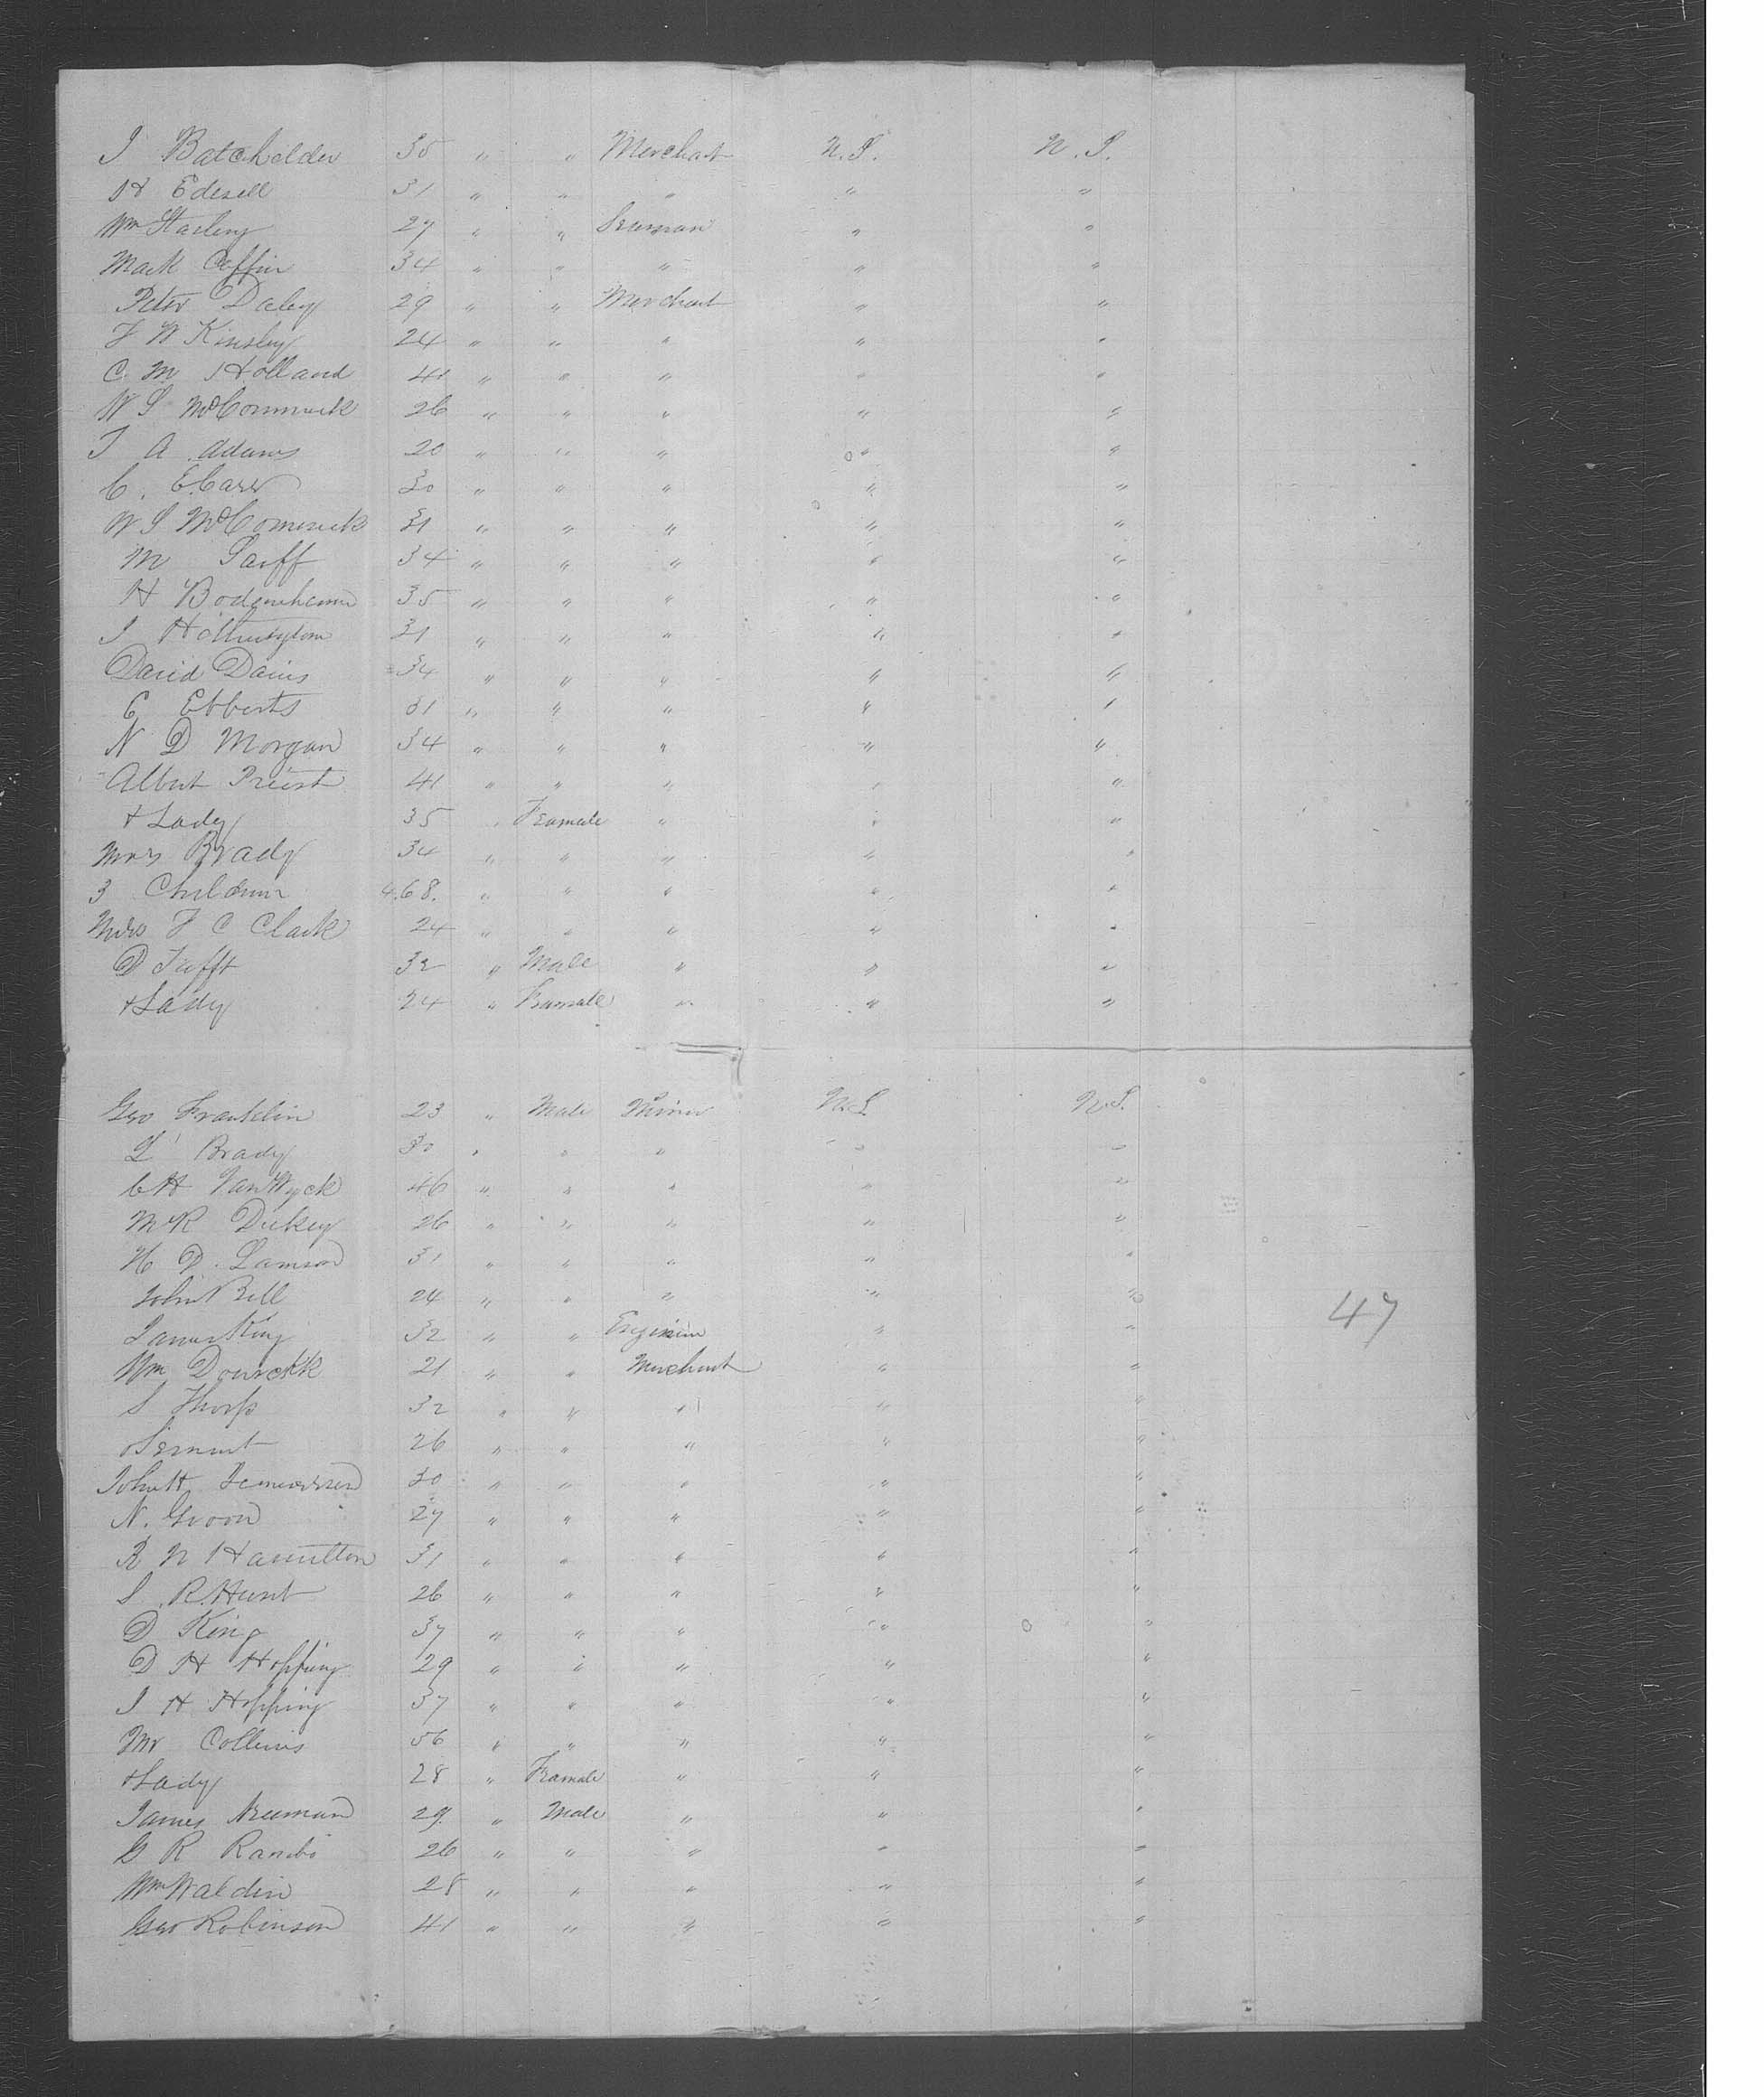 J Batchelder 35 " " Merchant U.S. U.S.
H Edsell 31 " " " " "
Wm Starling 27 " " Seaman " "
Mark Coffin 34 " " " " "
Peter Daley 29 " " Merchant " "
J W Kinsley 24 " " " " "
C. M Holland 41 " " " " "
W S McCormick 26 " " " " "
J A Adams 20 " " " " "
C. E. Carr 30 " " " " "
W S McCormick 31 " " " " "
M Sarff 34 " " " " "
H Bodenheimer 35 " " " " "
J 31 " " " " "
David Davis 34 " " " " "
C Ebberts 31 " " " " "
N D Morgan 34 " " " " "
Albert Priest 41 " " " " "
+ Lady 35 " Feamale " " "
Mrs Brady 34 " " " " "
3 Children 4.6 8. " " " " "
Mrs F C Clark 24 " " " " "
D Tufft 32 " Male " " "
+ Lady 24 " Feamale " " "
Geo Franklin 23 " Male Miner U.S. U.S.
L Brady 30 " " " " "
C H Van Wyck 46 " " " " "
M R Dickey 26 " " " " "
H D. Lamson 31 " " " " "
John Bell 24 " " " " "
James King 32 " " Engineer " "
47
Wm 21 " " Merchant " "
S Thorp 32 " " " " "
26 " " " " "
John H 30 " " " " "
N. Groom 27 " " " " "
R N Hamilton 31 " " " " "
S. R. Hunt 26 " " " " "
D King 37 " " " " "
D H Hopping 29 " " " " "
J H Hopping 37 " " " " "
Mr Collins 56 " " " " "
+ Lady 28 " Feamale " " "
James Neuman 29. " Male " " "
G R Rambo 26 " " " " "
Wm Waldin 28 " " " " "
Geo Robinson 41 " " " " "